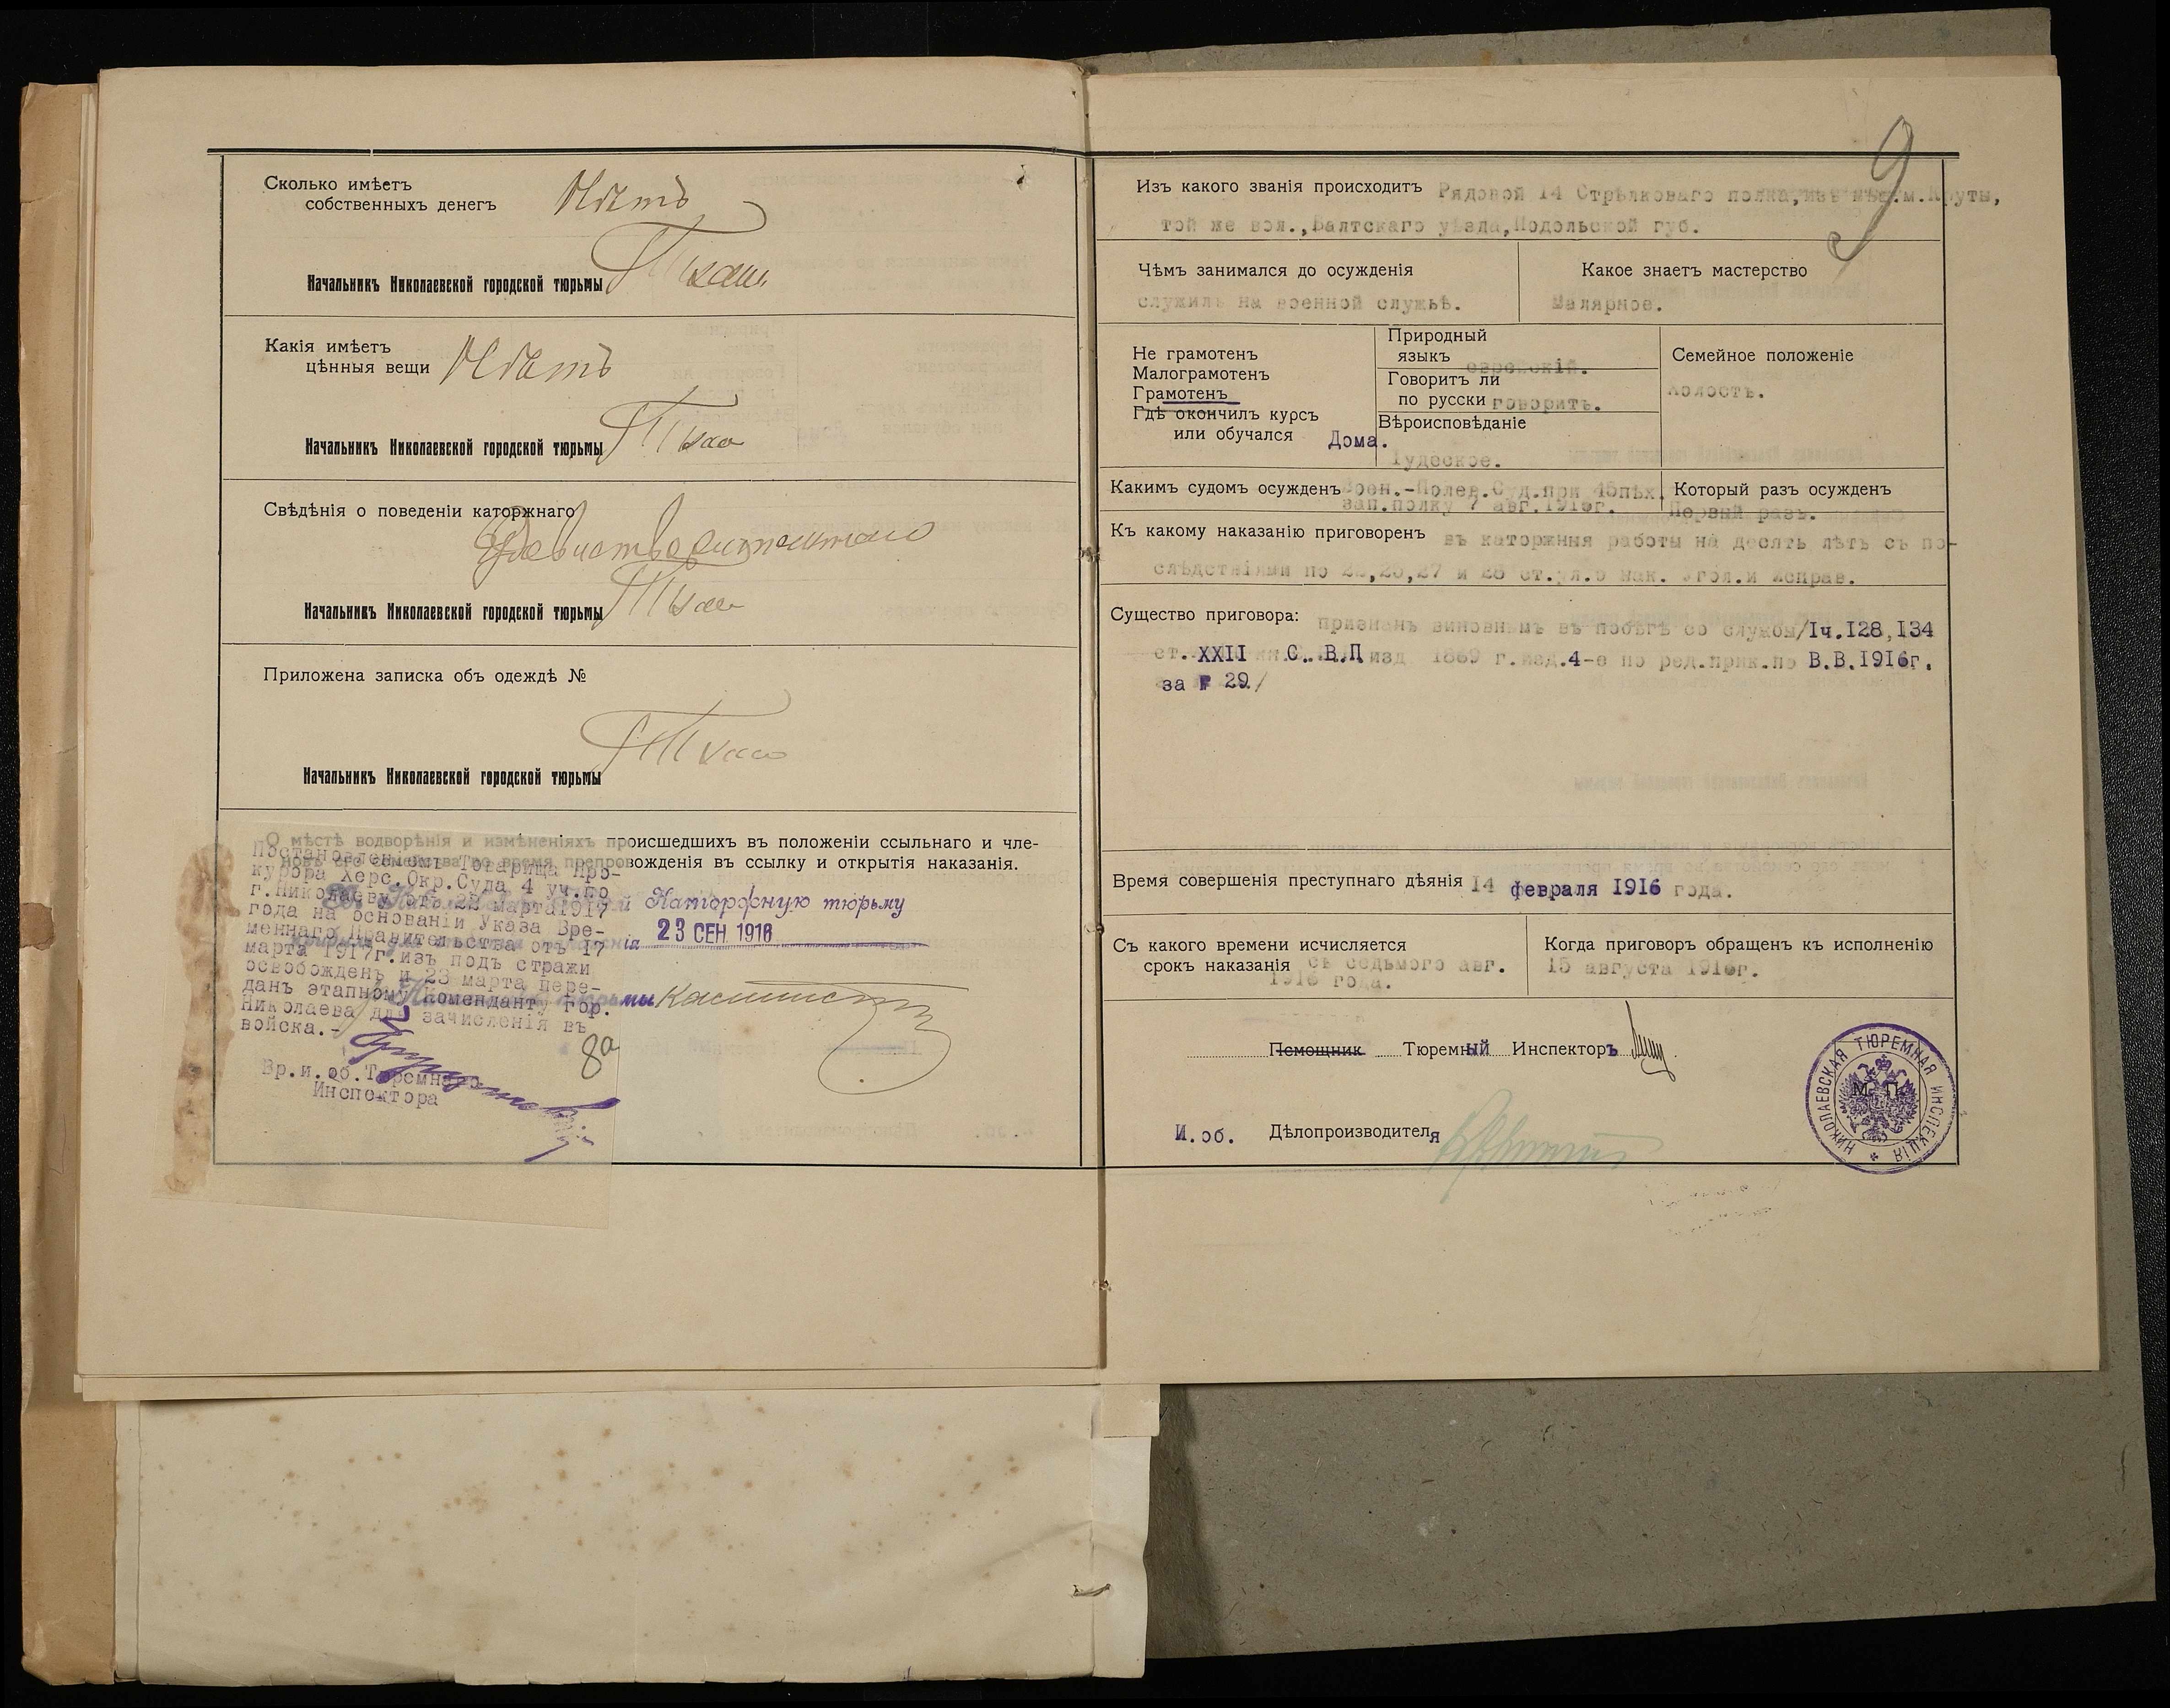 Сколько имѣетъ
собственныхъ денегъ Нѣтъ
Начальникъ Николаевской городской тюрьмы
Какія имѣетъ
цѣнныя вещи Нѣтъ
Начальникъ Николаевской городской тюрьмы
Свѣдѣнія о поведеніи каторжнаго
Начальникъ Николаевской городской тюрьмы
Приложена записка объ одеждѣ №
Начальникъ Николаевской городской тюрьмы
О мѣстѣ водворѣнія и измѣненіяхъ происшедшихъ въ положеніи ссыльнаго и чле-
новъ его семейства во время препровожденія въ ссылку и открытія наказанія.
Каторжную тюрьму
23 СЕН. 1916
Постановленіемъ Товарища Про-
курора Херс.Окр.Суда 4 уч.по
г.Николаеву отъ 22 марта 1917
года на основаніи Указа Вре-
меннаго Правительства отъ 17
марта 1917г.изъ подъ стражи
освобожденъ и 23 марта пере-
данъ этапному Коменданту гор.
Николаева для зачисленія въ
войска.-
8а
Вр.и.об.Тюремнаго
Инспектора
9
Изъ какого званія происходитъ Рядовой 14 Стрѣлковаго полка,изъ мѣщ.м.Круты,
той же вол.,Балтскаго уѣзда,Подольской губ.
Чѣмъ занимался до осужденія
служилъ на военной службѣ.
Какое знаетъ мастерство
Малярное.
Не грамотенъ
Малограмотенъ
Грамотенъ
Гдѣ окончилъ курсъ
или обучался Дома.
Природный
языкъ еврейскій.
Говоритъ ли
по русски говоритъ.
Вѣроисповѣданіе
Іудеское.
Семейное положеніе
Холостъ.
Какимъ судомъ осужденъ Воен.-Полев.Суд.при 45пѣх.
зап.полку 7 авг.1916г.
Который разъ осужденъ
Первый разъ.
Къ какому наказанію приговоренъ въ каторжныя работы на десять лѣтъ съ по-
слѣдствіями по 22,25,27 и 28 ст.ул.о нак. угол.и исправ.
Существо приговора: признанъ виновнымъ въ побѣгѣ со службы/Iч.I28,I34
ст. XXII кн. С. В.П изд 1869 г.изд.4-е по ред.прик.по В.В.I916г.
за № 29/
Время совершенія преступнаго дѣянія 14 февраля 1916 года.
Съ какого времени исчисляется
срокъ наказанія съ седьмого авг.
1916 года.
Когда приговоръ обращенъ къ исполненію
15 августа 1916г.
Помощникъ Тюремный Инспекторъ
И.об. Дѣлопроизводителя
НИКОЛАЕВСКАЯ ТЮРЕМНАЯ ИНСПЕКЦІЯ
М. П.